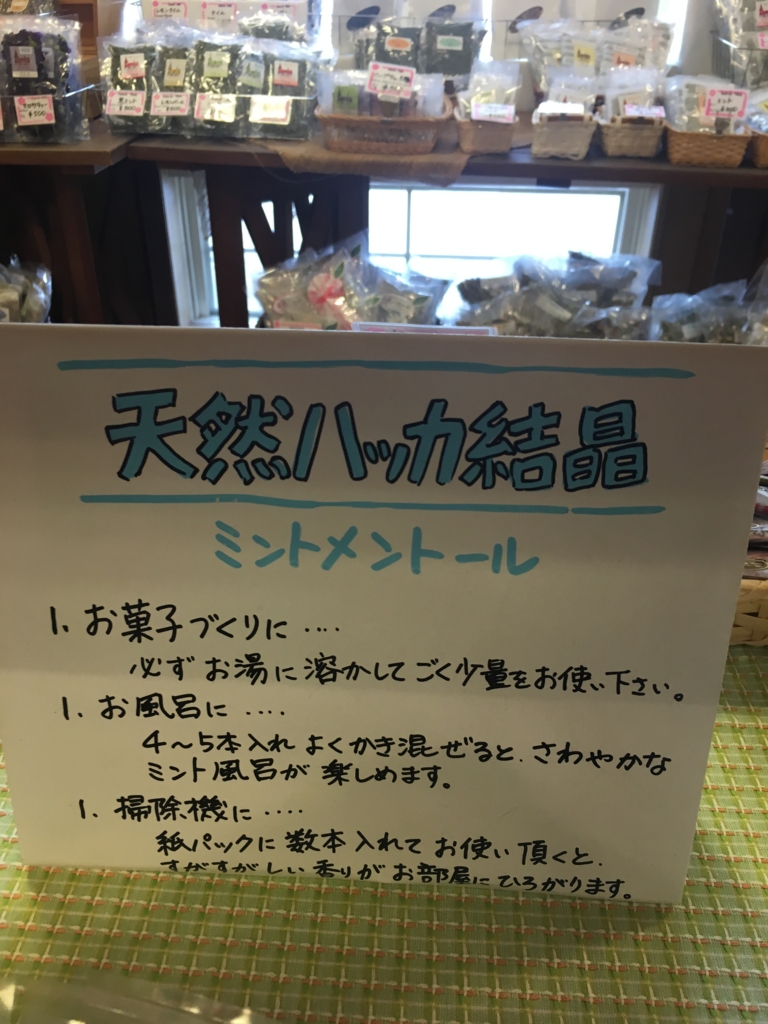 天然ハッカ結晶
ミントメントール
1. お菓子づくりに ‥‥
必ず お湯に 溶かして ごく少量をお使い下さい。
1. お風呂に ‥‥
4～5本入れ よくかき混ぜると、さわやかな
ミント風呂が 楽しめます。
1. 掃除機に ‥‥
紙パックに 数本 入れて お使い 頂くと、
すがすがしい 香りが お部屋に ひろがります。